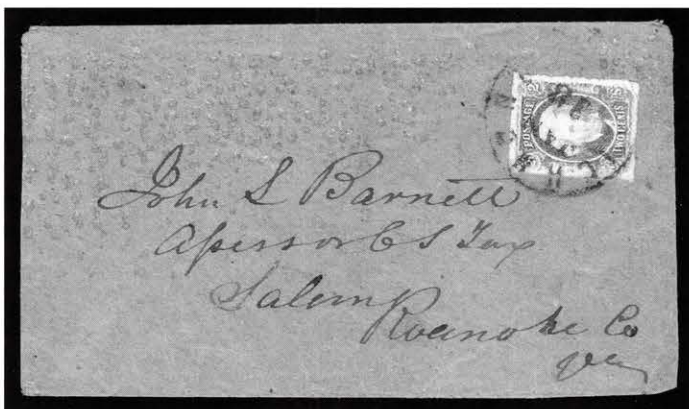 POSTAGE
TWO CENTS
John S Barnett
Assessor C S Tax
Salem
Roanoke Co
Va